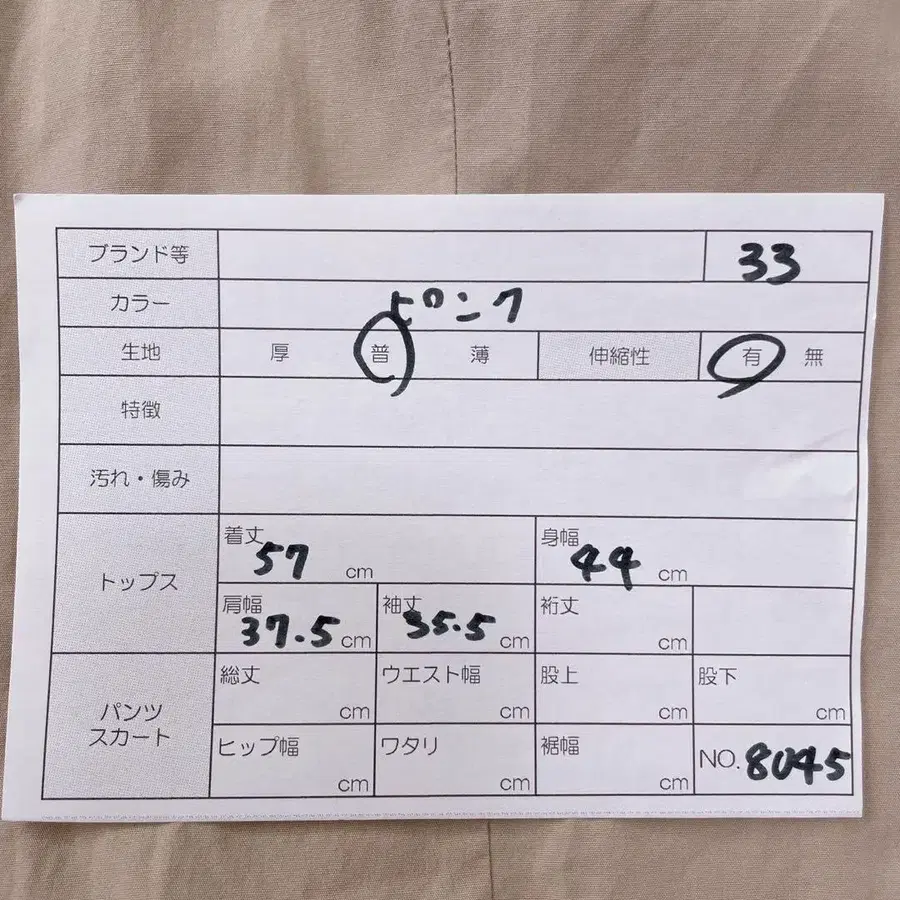 ブランド等 33
カラー ピンク
生地 厚 普 薄 伸縮性 有 無
特徴
汚れ・傷み
トップス
着丈 57 cm 身幅 44 cm
肩幅 37.5 cm 袖丈 35.5 cm 裄丈 cm
パンツ
スカート
総丈 cm ウエスト幅 cm 股上 cm 股下 cm
ヒップ幅 cm ワタリ cm 裾幅 cm NO. 8045